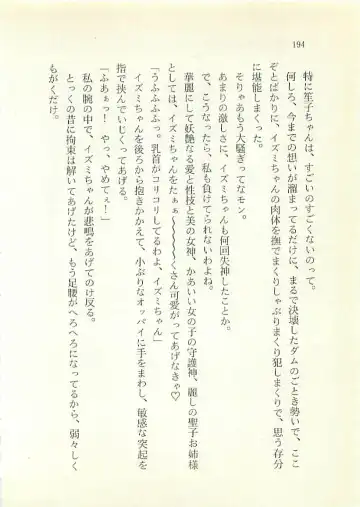 194
特に笙子ちゃんは、すごいのすごくないのって。
何しろ、今までの想いが溜まってるだけに、まるで決壊したダムのごとき勢いで、ここ
ぞとばかりに、イズミちゃんの肉体を撫でまくりしゃぶりまくり犯しまくりで、思う存分
に堪能しまくった。
そりゃあもう大騒ぎってなもの。
あまりの激しさに、イズミちゃんも何回失神したことか。
で、こうなったら、私も負けてられないわよね。
華麗にして妖艶なる愛と性技と美の女神、かあいい女の子の守護神、麗しの聖子お姉様
としては、イズミちゃんをたぁぁ〜〜〜〜〜くさん可愛がってあげなきゃ♡
「うふふふふっ。乳首がコリコリしてるわよ、イズミちゃん」
イズミちゃんを後ろから抱きかかえて、小ぶりなオッパイに手をまわし、敏感な突起を
指で挟んでいじくってあげる。
「ふあぁっ！　やっ、やめてぇ！」
私の腕の中で、イズミちゃんが悲鳴をあげてのけ反る。
とっくの昔に拘束は解いてあげたけど、もう足腰がへろへろになってるから、弱々しく
もがくだけ。